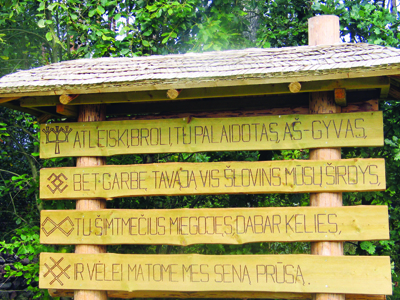 ATLEISK, BROLI, TU PALAIDOTAS, AŠ-GYVAS,
BET GARBĘ TAVĄJĄ VIS ŠLOVINS MŪSŲ ŠIRDYS,
TU ŠIMTMEČIUS MIEGOJĘS, DABAR KELIES,
IR VĖLEI MATOME MES SENĄ PRŪSĄ.